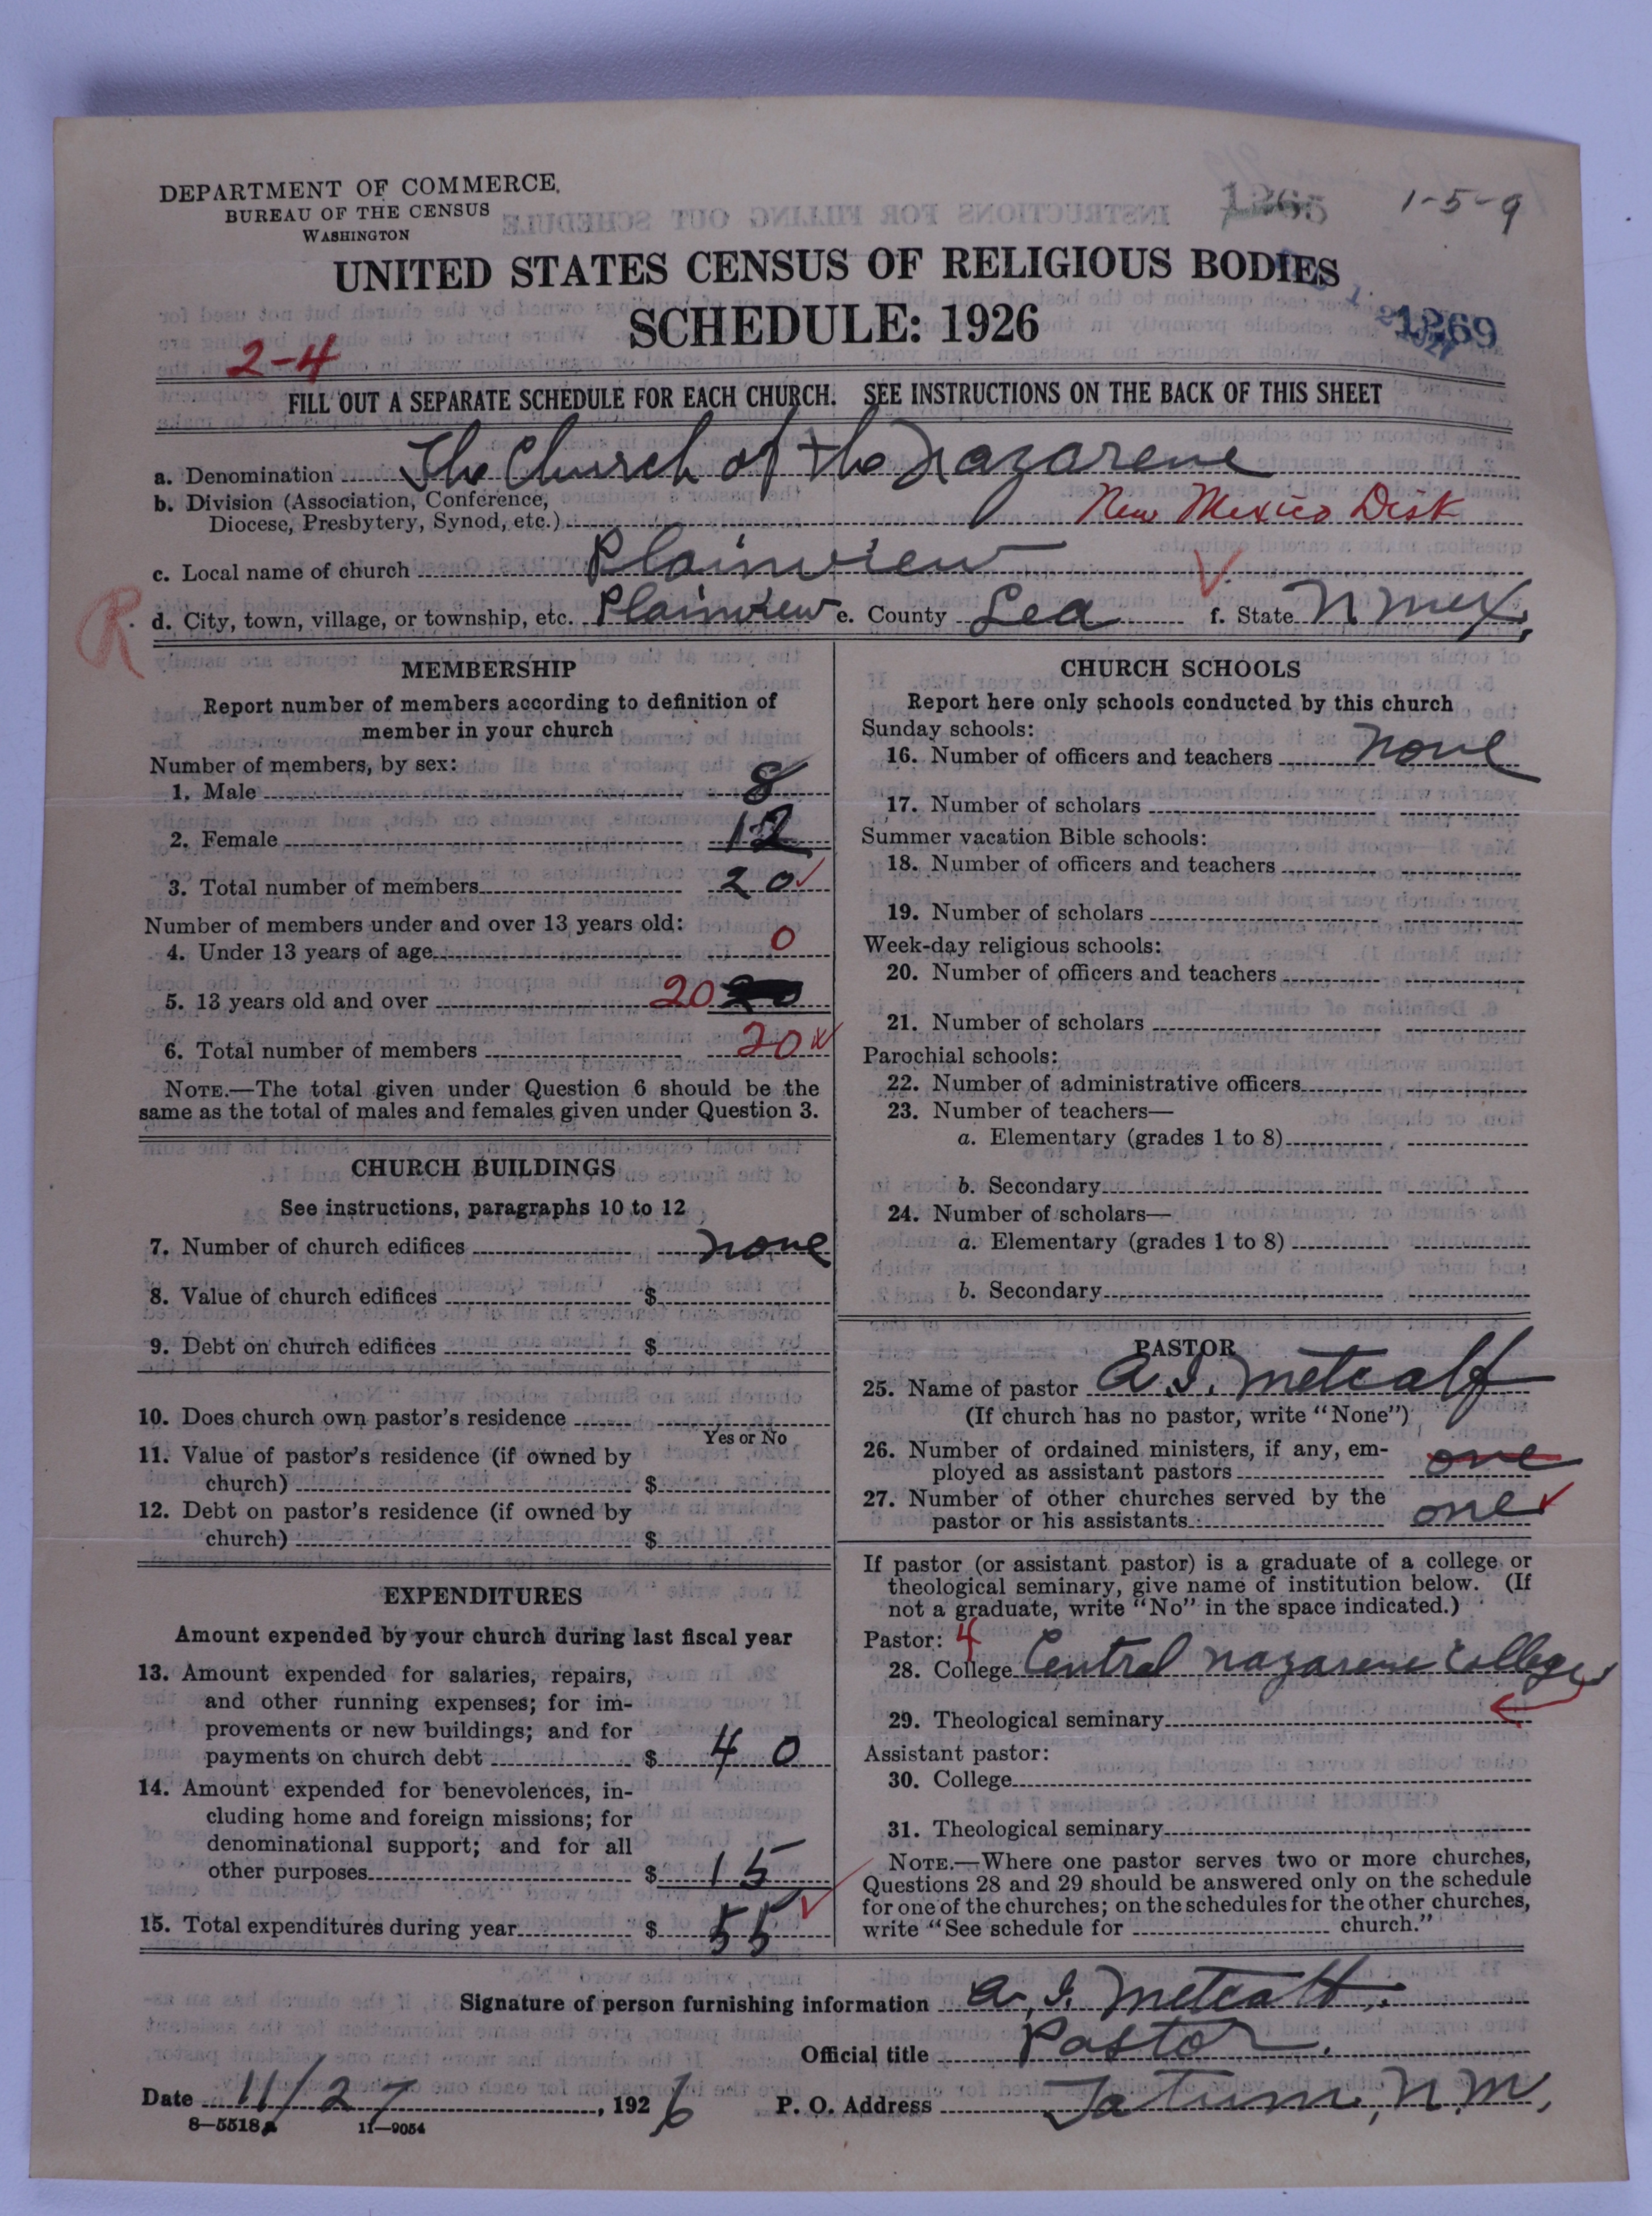 DEPARTMENT OF COMMERCE
BUREAU OF THE CENSUS
WASHINGTON
1265
1-5-9
UNITED STATES CENSUS OF RELIGIOUS BODIES
SCHEDULE: 1926
1269
2-4
FILL OUT A SEPARATE SCHEDULE FOR EACH CHURCH. SEE INSTRUCTIONS ON THE BACK OF THIS SHEET
a. Denomination The Church of the Nazarene
b. Division (Association, Conference,
Diocese, Presbytery, Synod, etc.) New Mexico Dist
c. Local name of church Plainview
R d. City, town, village, or township, etc. Plainview e. County Lea f. State N Mex,
MEMBERSHIP
Report number of members according to definition of
member in your church
Number of members, by sex:
1. Male 8
2. Female 12
3. Total number of members 20
Number of members under and over 13 years old:
4. Under 13 years of age 0
5. 13 years old and over 20
6. Total number of members 20
NOTE.—The total given under Question 6 should be the
same as the total of males and females given under Question 3.
CHURCH BUILDINGS
See instructions, paragraphs 10 to 12
7. Number of church edifices none
8. Value of church edifices $
9. Debt on church edifices $
10. Does church own pastor's residence
Yes or No
11. Value of pastor's residence (if owned by
church) $
12. Debt on pastor's residence (if owned by
church) $
EXPENDITURES
Amount expended by your church during last fiscal year
13. Amount expended for salaries, repairs,
and other running expenses; for im-
provements or new buildings; and for
payments on church debt $ 40
14. Amount expended for benevolences, in-
cluding home and foreign missions; for
denominational support; and for all
other purposes $ 15
15. Total expenditures during year $ 55
CHURCH SCHOOLS
Report here only schools conducted by this church
Sunday schools:
16. Number of officers and teachers none
17. Number of scholars
Summer vacation Bible schools:
18. Number of officers and teachers
19. Number of scholars
Week-day religious schools:
20. Number of officers and teachers
21. Number of scholars
Parochial schools:
22. Number of administrative officers
23. Number of teachers—
a. Elementary (grades 1 to 8)
b. Secondary
24. Number of scholars—
a. Elementary (grades 1 to 8)
b. Secondary
PASTOR
25. Name of pastor A. I. Metcalf
(If church has no pastor, write "None")
26. Number of ordained ministers, if any, em-
ployed as assistant pastors one
27. Number of other churches served by the
pastor or his assistants one
If pastor (or assistant pastor) is a graduate of a college or
theological seminary, give name of institution below. (If
not a graduate, write "No" in the space indicated.)
Pastor: 4
28. College Central Nazarene College
29. Theological seminary
Assistant pastor:
30. College
31. Theological seminary
NOTE.—Where one pastor serves two or more churches,
Questions 28 and 29 should be answered only on the schedule
for one of the churches; on the schedules for the other churches,
write "See schedule for church."
Signature of person furnishing information A. I. Metcalf.
Official title Pastor.
Date 11/27, 1926 P. O. Address Tatum, N. M.
8—5518a 11—9054